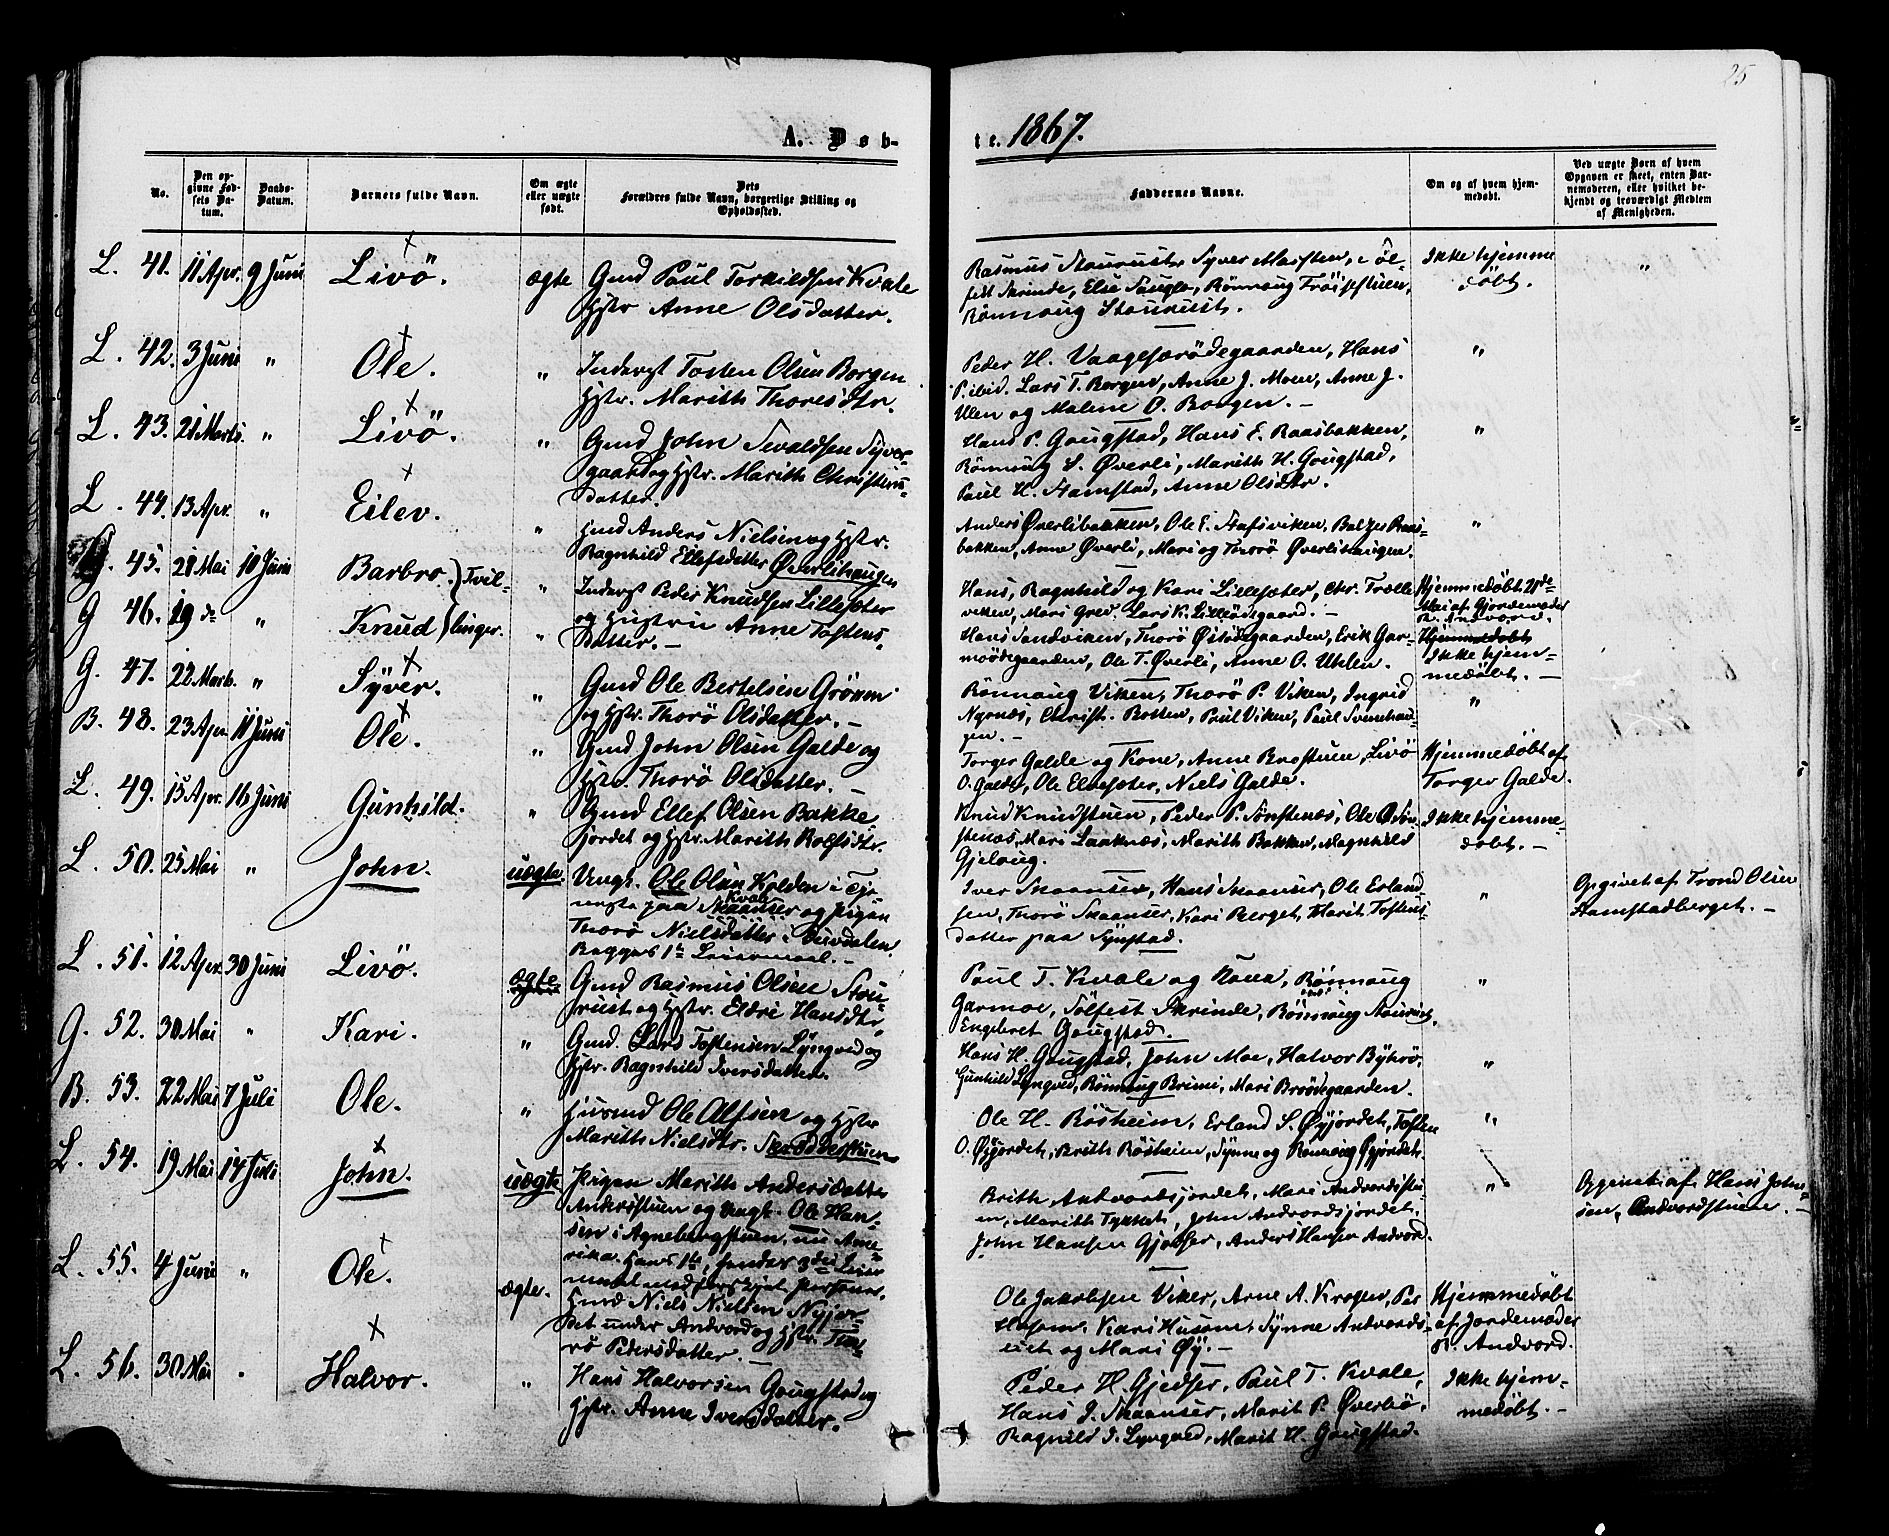 25
A. Døb-
te. 1867.
No.
Den op-
givne Fød-
sels Da-
tum.
Daabs-
Datum.
Barnets fulde Navn.
Om ægte
eller uægte
født.
Dets
Forældres fulde Navn, borgerlige Stilling og
Opholdssted.
Faddernes Navne.
Om og af hvem hjem-
medøbt.
Ved uægte Børn af hvem
Opgaven er skeet, enten Bar-
nemoderen, eller hvilket be-
kjendt og troværdigt Medlem
af Menigheden.
L. 41. 11 Apr. 9 Juni Livö. ægte Gmd Paul Torkildsen Kvale
Hstr Anne Olsdatter.
Rasmus Stourust, Syver Marsten, Söl-
fest Skrinde, Else Sougle, Rönnoug Tröisstuen,
Rönnoug Stourust.
Ikke hjemme
døbt.
"
L. 42. 3 Juni " Ole. " Inderst Tosten Olsen Borgen
Hstr. Marith Thoresdtr.
Peder H. Vaagesærödegaarden, Hans
P. ibid. Lars T. Borgen, Anne J. Moen, Anne J.
Ulen og Malene O. Borgen. —
"
L. 43. 21 Marts. " Livö. " Gmd John Sevaldsen Syver-
gaard og Hstr. Marith Christens-
datter.
Hans P. Gougstad, Hans E. Raasbakken,
Rönnoug S. Øverli, Marith H. Gougstad,
Paul H. Stamstad, Anne Olsdtr.
"
L. 44. 13 Apr. " Eilev. " Hmd Anders Nielsen og Hstr.
Ragnhild Ellefsdatter Øverlihaugen
Anders Øverlibakken, Ole E. Stafsviken, Balzer Raas-
bakken, Anne Øverli, Mari og Thorö Øverlihaugen.
"
G. 45. 21 Mai 10 Juni Barbro. } Tvil- " Inderst Peder Knudsen Lillesæter
Hans, Ragnhild og Kari Lillesæter, Chr. Trolle
viken, Mari Gred, Lars K. Lilleødegaard. —
Hjemmedøbt 21de
Mai af Gjordemoder
R. Andvord.
G 46. 19 do " Knud } linger. " og Hustru Anne Tostens-
datter. —
Hans Sandviken, Thorö Östödegaarden, Erik Gar-
moödegaarden, Ole T. Øverli, Anne O. Uhlen.
Hjemmedøbt
Ikke hjem-
medøbt. —
G. 47. 22 Marts. " Syver. " Gmd Ole Bertelsen Grönn
og Hstr. Thorö Olsdatter. —
Rönnoug Viken, Thorö P. Viken, Ingrid
Nyrnæs, Christ. Botten, Paul Viken, Paul Svinehau-
gen. —
"
B. 48. 23 Apr 11 Juni Ole. " Gmd John Olsen Galde og
Hstr. Thorö Olsdatter. —
Torger Galde og Kone, Anne Brostuen, Livö
O. Galde, Ole Elvesæter, Niels Galde.
Hjemmedøbt af
Torger Galde.
L. 49. 15 Apr. 16 Juni Gunhild. " Gmd Ellef Olsen Bakke-
jordet og Hstr. Marith Rolfsdtr.
Knud Knudstuen, Peder P. Sørstenæs, Ole O Sör-
stenæs, Mari Laaknæs, Marith Bakken, Magnhild
Gjeloug.
Ikke hjemme-
døbt. —
L. 50. 25 Mai " John. uægte. Ungk. Ole Olsen Kolden i Tje-
neste paa Skaanser Kvale og Pigen
Thorö Nielsdatter i Dusdalen.
Begges 1te Leiermaal. —
Iver Skaanser, Hans Skaanser, Ole Erland-
sen, Thorö Skaanser, Kari Berget, Marit Tostens-
datter paa Synstad.
"
Opgivet af Trond Olsen
Aamstadberget. —
L. 51. 12 Apr. 30 Juni Livö. ægte Gmd Rasmus Olsen Stou-
rust og Hstr. Eldri Hansdtr.
Paul T. Kvale og Kona, Rönnoug
Garmoe, Sölfest Skrinde, Rönnoug Stourust,
Engebret Gougstad.
"
G. 52. 30 Mai " Kari. " Gmd. Lars Tostensen Lyngved og
Hstr. Ragnhild Iversdatter.
Hans H. Gougstad, John Moe, Halvor Byhrö,
Gunhild Lyngved, Rönnoug Brimi, Mari Bröödegaarden.
"
B. 53. 22 Mai 7 Juli Ole. " Husmd Ole Alfsen og Hstr
Marith Nielsdtr. Skrödderstuen
Ole H. Rösheim, Erland S. Øyjordet, Tosten
O. Øyjordet, Brith Rösheim, Synne og Rönnoug Øyjordet.
"
L. 54. 19 Mai 14 Juli John. uægte Pigen Marith Andersdatter
Ankerstuen og Ungk. Ole Han-
sen i Agnebergstuen, nu Ame-
rika. Hans 1te, hendes 3die Leier
maal med forskjel. Personer.
Brith Andvordsjordet, Mari Andvordstu-
en, Marith Tykket, John Andvordsjordet,
John Hansen Gjedser, Anders Hansen Andvord.
"
Opgivet af Hans John-
sen, Andvordstuen. —
L. 55. 4 Juni " Ole. ægte. Hmd Niels Nielsen Nyjor-
det under Andvord og Hstr.
Pedersdatter. —
Ole Jakobsen Viker, Arne A. Krogen, Per
Husom, Kari Husom, Synne Andvords-
eiet og Mari Øy. —
Hjemmedøbt
af Jordemoder
R. Andvord.
L. 56. 30 Mai " Halvor. " Hans Halvorsen Gougstad og
Hstr. Anne Iversdatter.
Peder H. Gjedser, Paul T. Kvale,
Hans I. Skaanser, Marit P. Øverbö,
Ragnild I. Lyngved, Marit H. Gougstad.
Ikke hjem-
medøbt. —